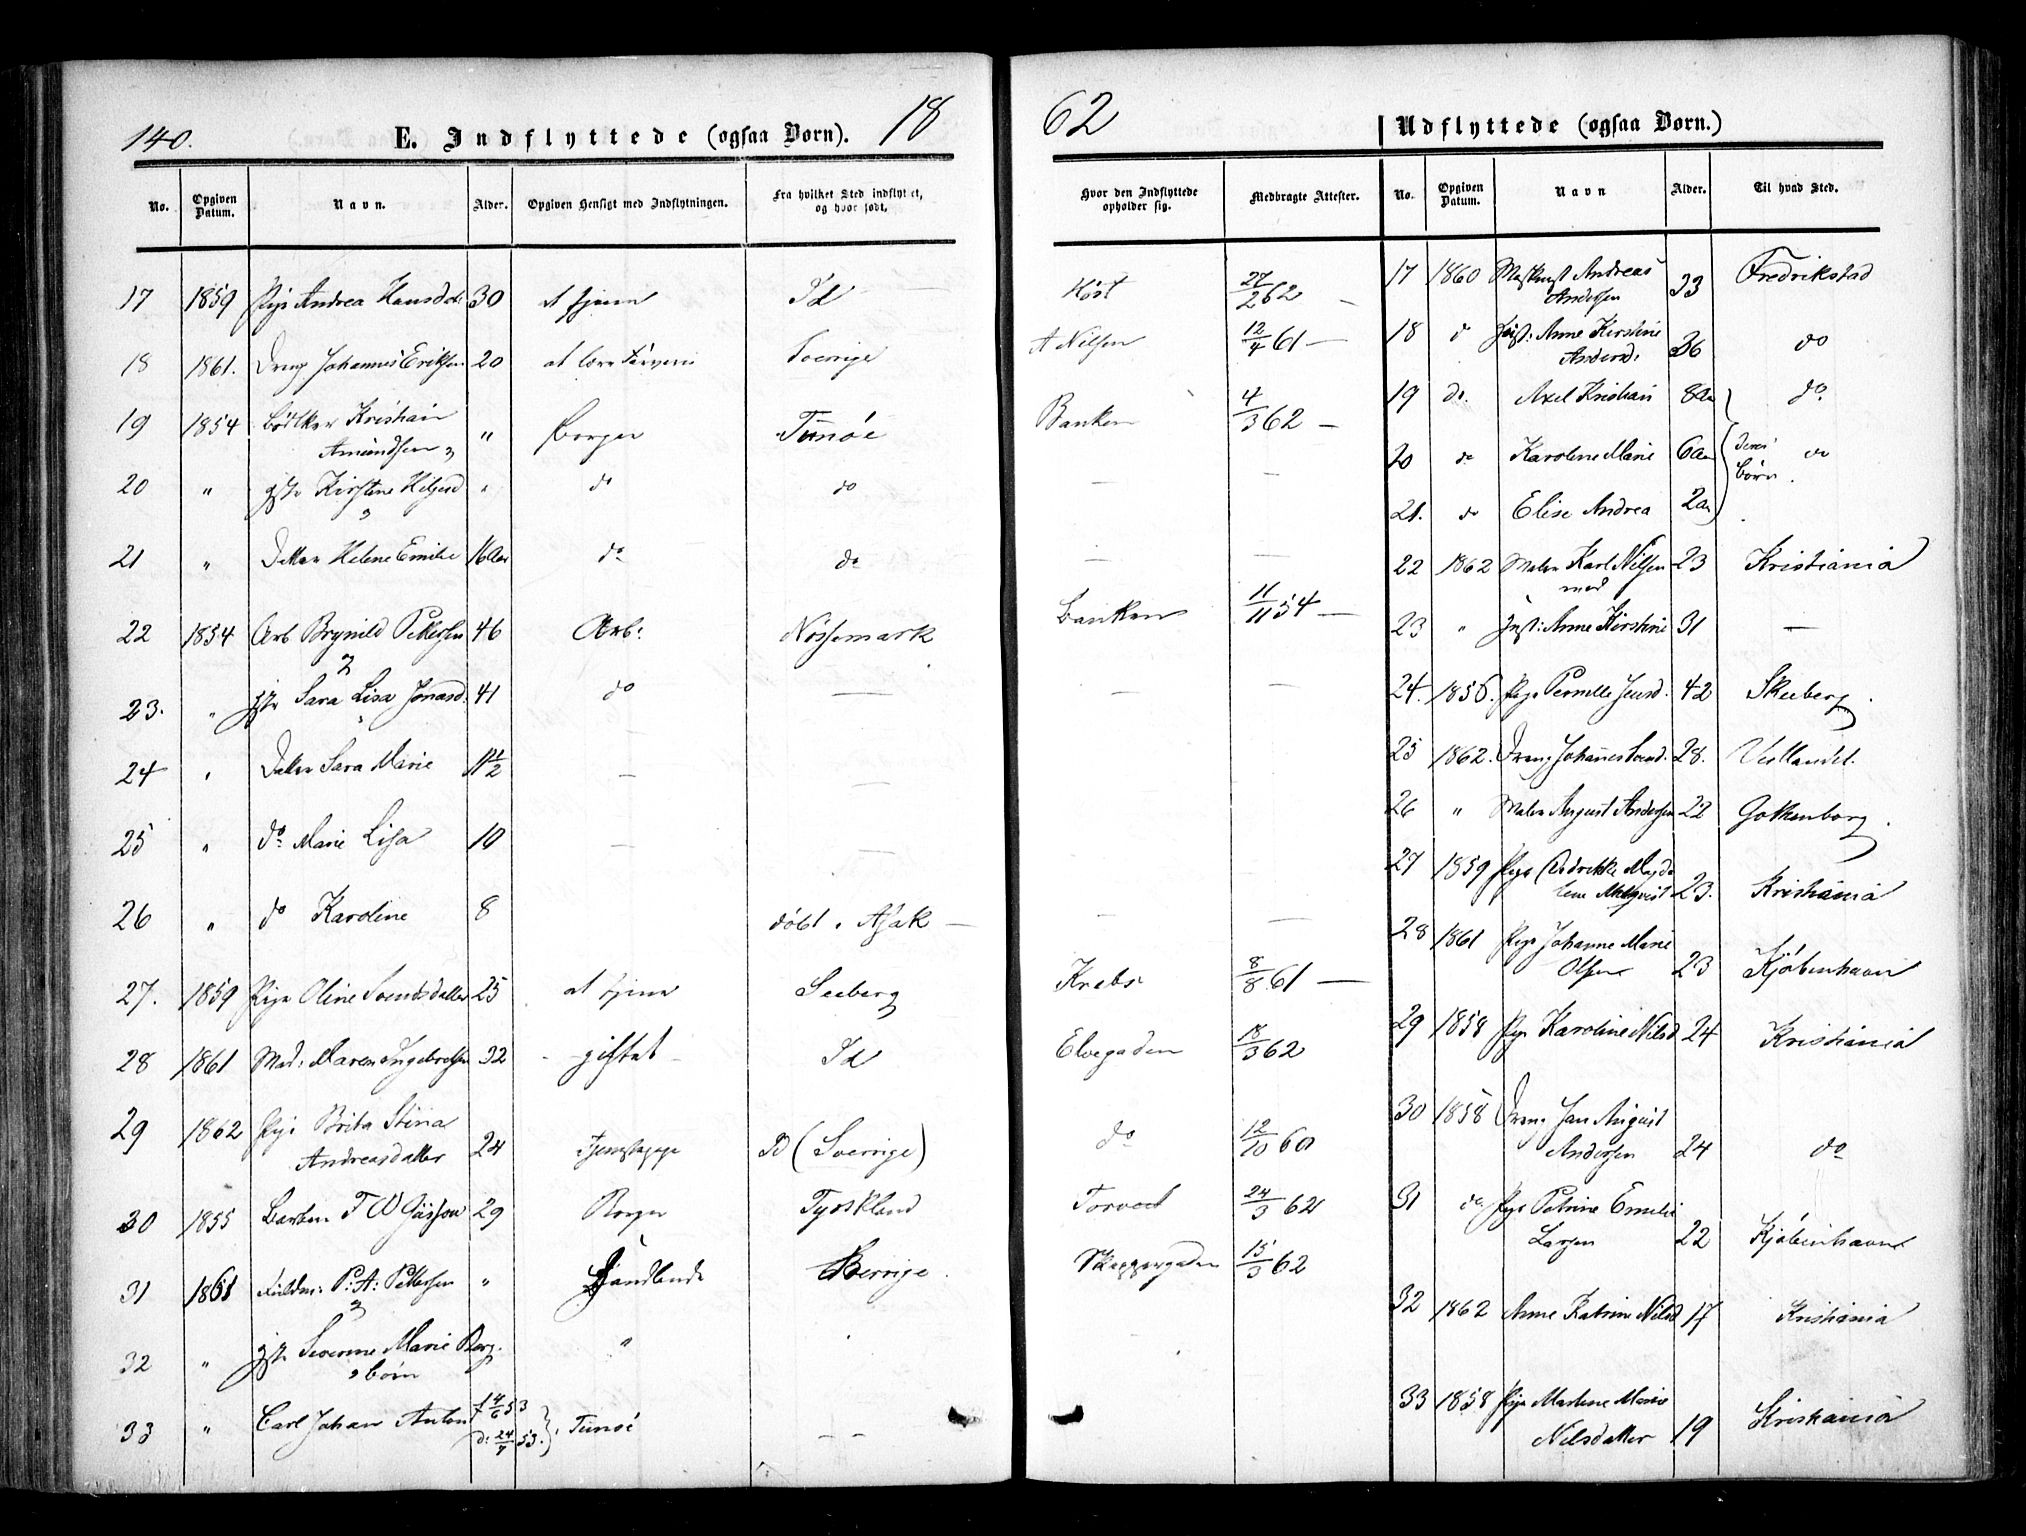 140. E. Indflyttede (ogsaa Børn). 18
No. Opgiven Datum. Navn. Alder. Opgiven Hensigt med Indflytningen. Fra hvilket Sted indflyttet, og hvor født.
17 1859 Pige Andrea Hansdtr 30 at tjene Id
18 1861. Dreng Johannes Eriksen 20 at lære Farveri Sverige
19 1854 Bödker Kristian Amundsen " Borger Tunöe
20 " gift Kirstine " do do
21 " Datter Helene Emilie 16 Aar do do
22 1854 Arb Brynild Pettersen 46 Arb: Nössemark
23. " gift Sara Lisa Jonasd. 41 do —
24 " Datter Sara Marie 11½ — —
25 " do Marie Lisa 10 — —
26 " do Karoline 8 döbt i Asak —
27. 1859 Pige Oline Svendsdatter 25 at tjene Seeberg
28 1861 Mad: Maren Ingebretsen 32 giftet Id
29 1862 Pige Brita Stina Andreasdatter 24 Tjenestepige (Sverrige)
30 1855 F W 29 Borger Tydskland
31 1861 P: A: Pettersen " Handlende Sverrige
32 " gift Severine Marie Berg. "
börn
33 " Carl Johan Anton f 4/6 53 d: 24/7 53. Tunöe — —
62 Udflyttede (ogsaa Børn.)
Hvor den Indflyttede opholder sig. Medbragte Attester. No. Opgiven Datum. Navn Alder. Til hvad Sted.
Höst 27/2 62 —
A Nilsen 12/4 61 —
Banken 4/3 62 —
— —
— —
Banken 11/11 54 —
— —
— —
Krebs 8/8 61 —
Elvegaden 18/3 62
do 12/10 60
Torvet 24/3 62
Skeppergaden 15/3 62
17 1860 Andreas Andersen 33 Fredrikstad
18 do Anne Kirstine Andersd: 36 do
19 do. Axel Kristian 8 Aar do
20 do Karoline Marie 6 Aar deres börn do
21. do Elise Andrea 2 Aar
22 1862 Maler Karl Nilsen med 23 Kristiania
23 " Anne Kirstine 31 —
24. 1856. Pige Pernille Jensd. 42 Skeeberg.
25 1862. Dreng Johannes Svend. 28. Vestlandet.
26 " Maler August Andersen 22 Gothenborg.
27 1859 Pige Fredrikke Magdalene 23. Kristiania
28 1861 Pige Johanne Marie Olsen 23 Kjöbenhavn
29 1858 Pige Karoline Nilsd 24 Kristiania
30 1858 Dreng Jan August Andersen 24 do
31 do Pige Petrine Emilie Larsen 22 Kjöbenhavn
32 1862 Anne Katrine Nilsd 17 Kristiania
33 1858 Pige Martine Marie Nilsdatter 19 Kristiania